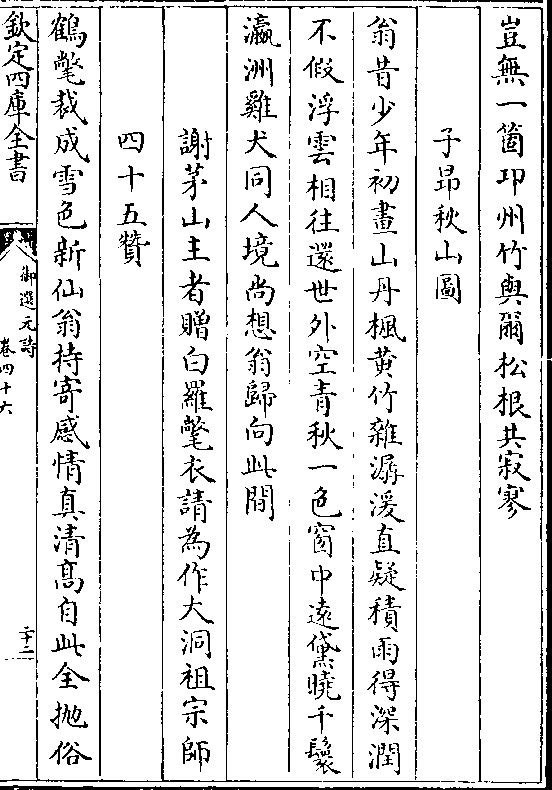 豈無一箇卭州竹與爾松根共寂寥
子昻秋山圖
翁昔少年初畫山丹楓黄竹雜潺湲直疑積雨得深潤
不假浮雲相往還世外空青秋一色窗中遠黛曉千鬟
瀛洲雞犬同人境尚想翁歸向此間
謝茅山主者贈白羅氅衣請為作大洞祖宗師
四十五贊
鶴氅裁成雪色新仙翁持寄感情真清髙自此全抛俗
欽定四庫全書
御選元詩
卷四十六
二十二